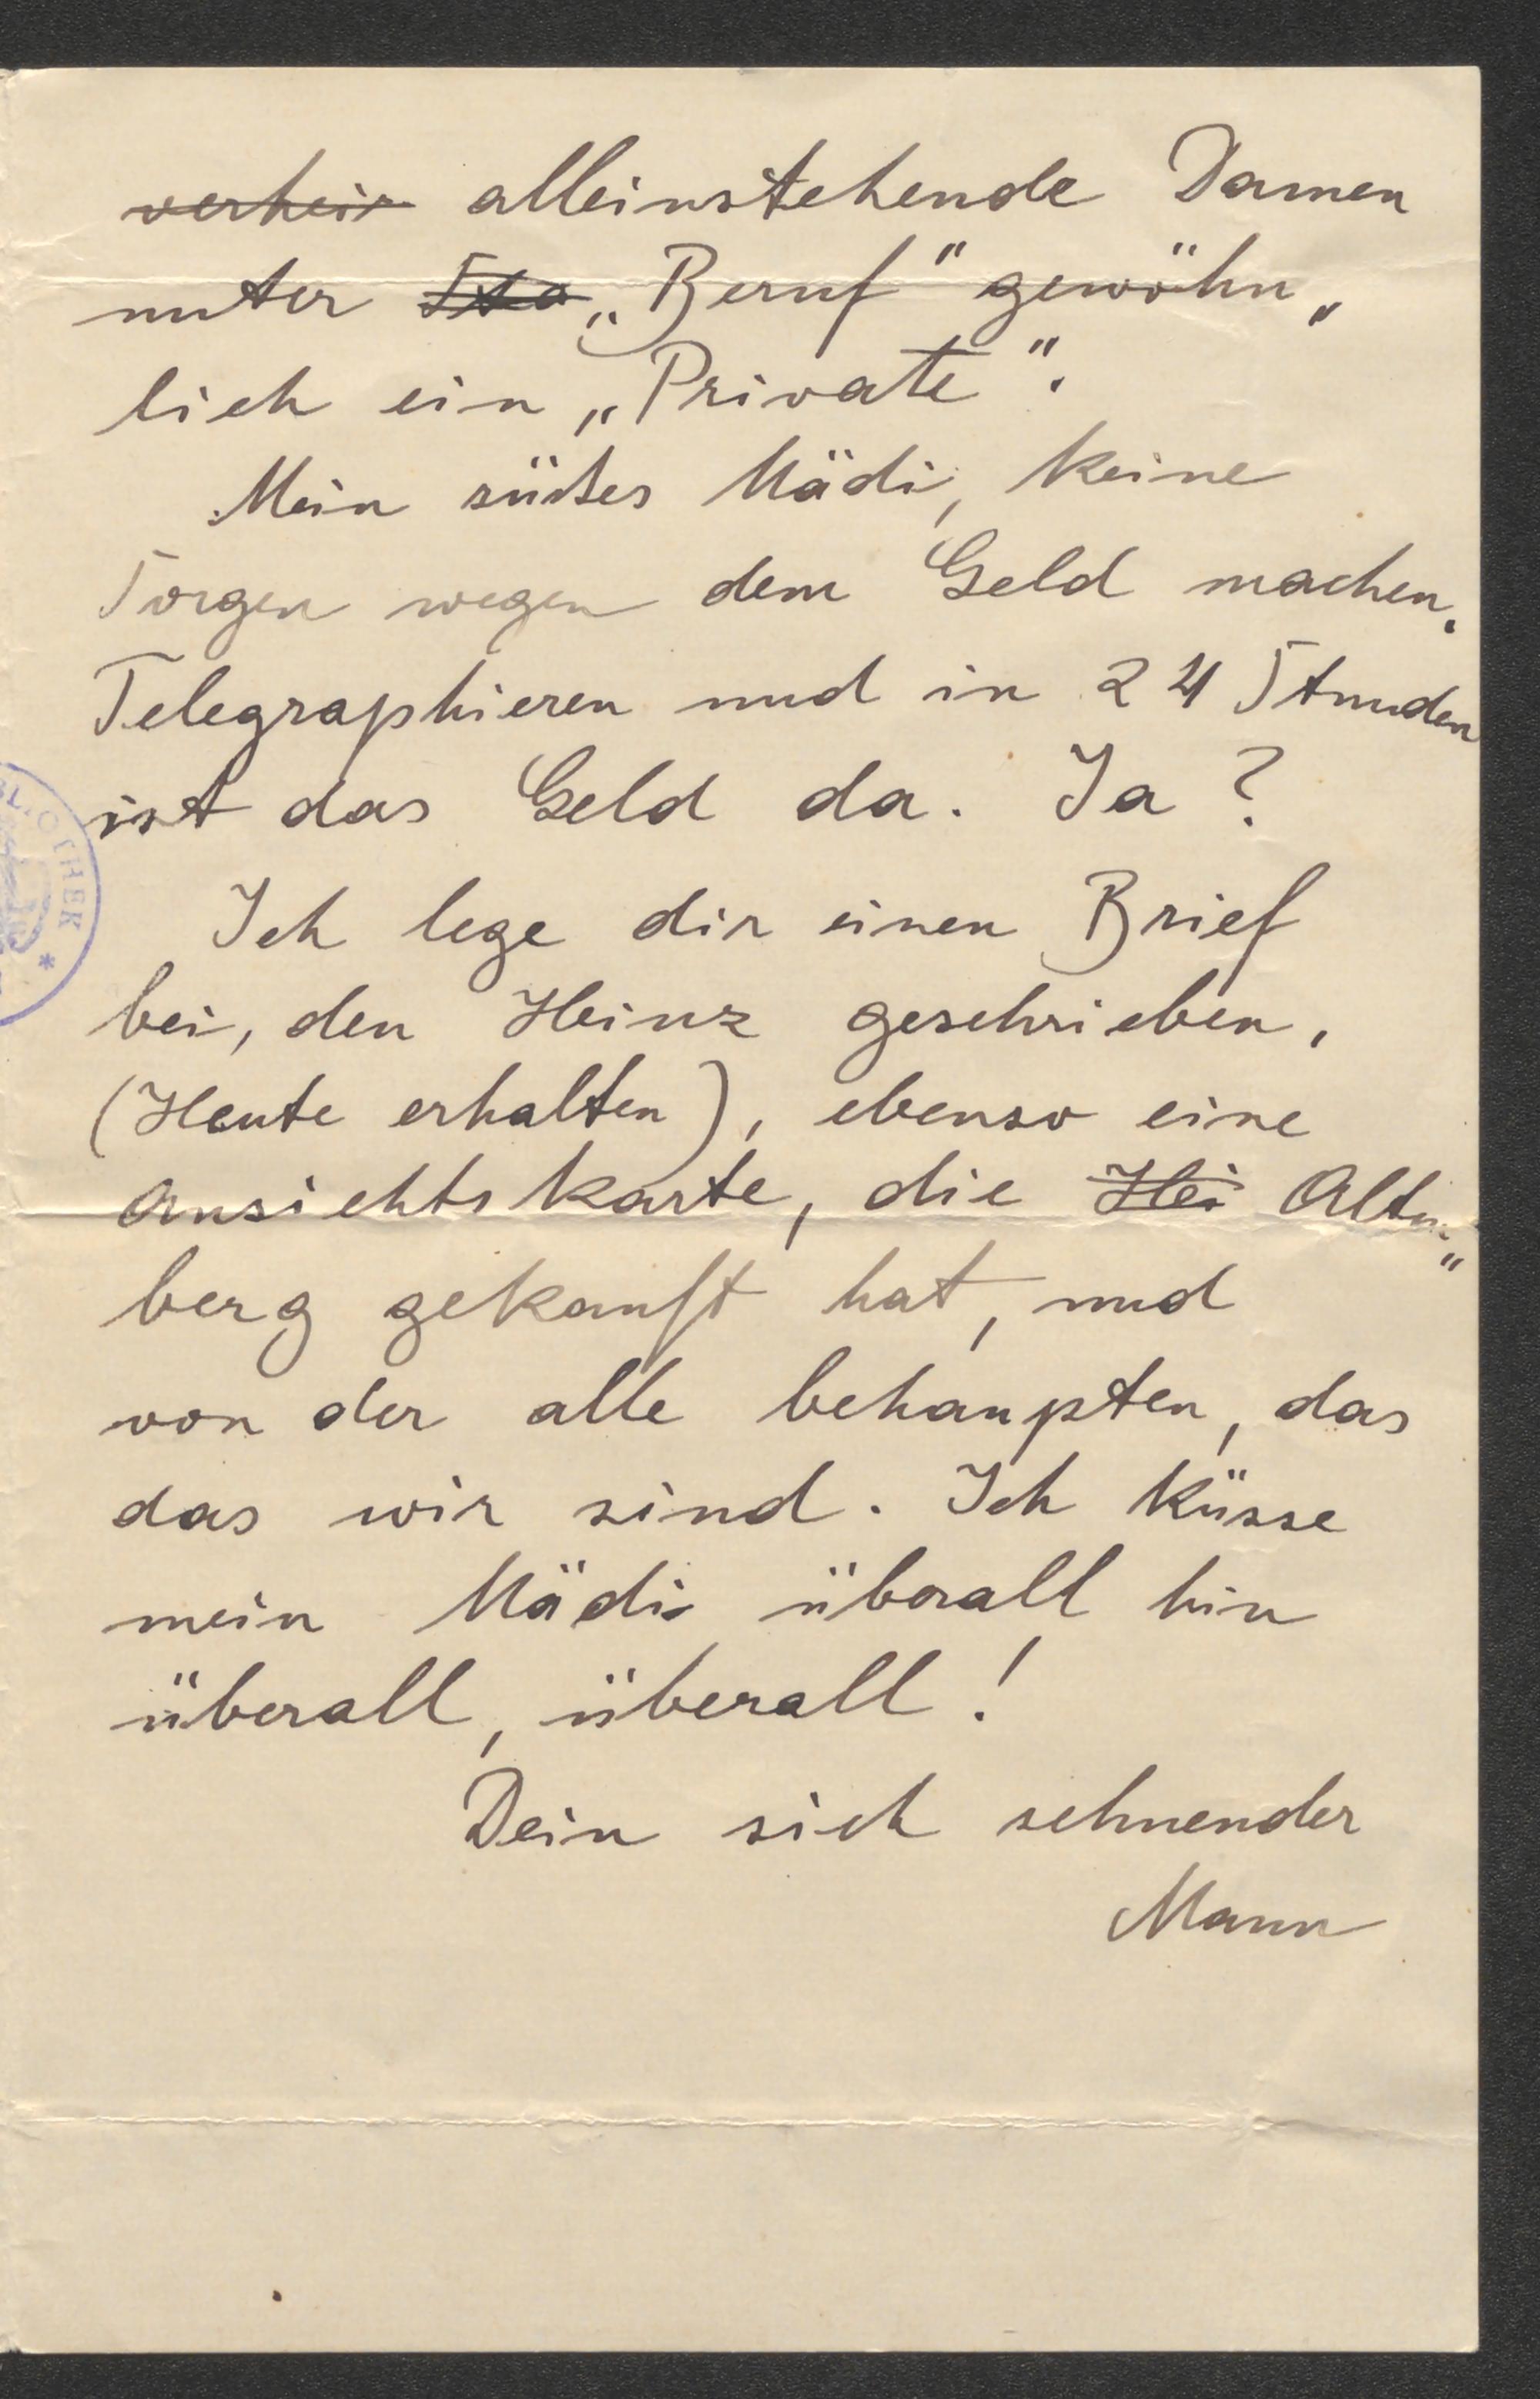 verheir alleinstehende Damen
unter Sta „Beruf" gewöhn„
lich ein „Private".
Mein süßes Mädi, keine
Sorgen wegen dem Geld machen.
Telegraphieren und in 24 Stunden
ist das Geld da. Ja?
Ich lege dir einen Brief
bei, den Heinz geschrieben,
(Heute erhalten), ebenso eine
Ansichtskarte, die Hei Alten„
berg gekauft hat, und
von der alle behaupten, das
das wir sind. Ich küsse
mein Mädi überall hin
überall, überall!
Dein sich sehnender
Mann
OTHEK *